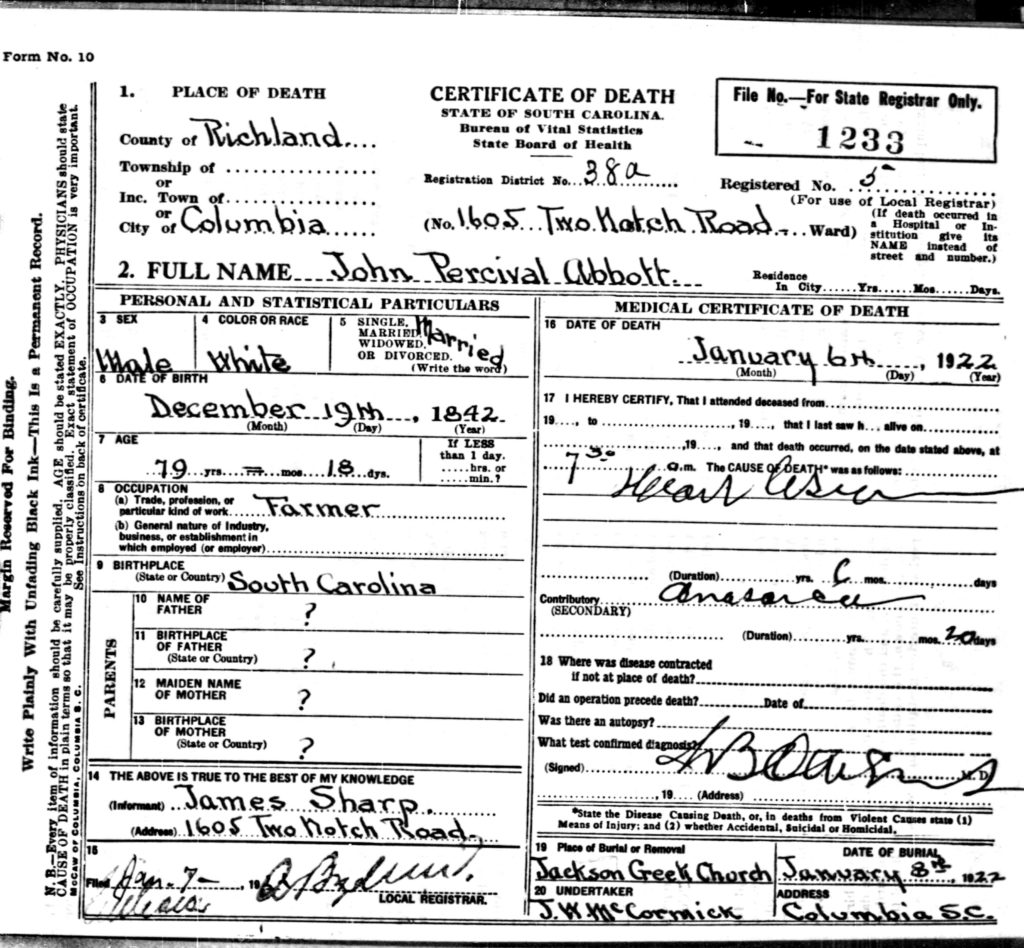 Form No. 10
1. PLACE OF DEATH
County of Richland
Township of
or
Inc. Town of
or
City of Columbia
CERTIFICATE OF DEATH
STATE OF SOUTH CAROLINA.
Bureau of Vital Statistics
State Board of Health
Registration District No. 38a
File No.—For State Registrar Only.
1233
Registered No. 5
(For use of Local Registrar)
(No. 1605 Two Notch Road Ward)
(If death occurred in
a Hospital or In-
stitution give its
NAME instead of
street and number.)
2. FULL NAME John Percival Abbott.
Residence
In City Yrs. Mos. Days.
PERSONAL AND STATISTICAL PARTICULARS
3 SEX
Male
4 COLOR OR RACE
White
5 SINGLE,
MARRIED,
WIDOWED,
OR DIVORCED.
(Write the word)
Married
6 DATE OF BIRTH
December 19th, 1842
(Month) (Day) (Year)
7 AGE
79 yrs. — mos. 18 dys.
If LESS
than 1 day.
hrs. or
min.?
8 OCCUPATION
(a) Trade, profession, or
particular kind of work Farmer
(b) General nature of Industry,
business, or establishment in
which employed (or employer)
9 BIRTHPLACE
(State or Country) South Carolina
PARENTS
10 NAME OF
FATHER ?
11 BIRTHPLACE
OF FATHER
(State or Country) ?
12 MAIDEN NAME
OF MOTHER ?
13 BIRTHPLACE
OF MOTHER
(State or Country) ?
14 THE ABOVE IS TRUE TO THE BEST OF MY KNOWLEDGE
(Informant) James Sharp.
(Address) 1605 Two Notch Road.
15
Filed Jan. 7- 19
LOCAL REGISTRAR.
MEDICAL CERTIFICATE OF DEATH
16 DATE OF DEATH
January 6th, 1922
(Month) (Day) (Year)
17 I HEREBY CERTIFY, That I attended deceased from
19, to 19, that I last saw h alive on
,19, and that death occurred, on the date stated above, at
7 30 a.m. The CAUSE OF DEATH* was as follows:
Heart
(Duration) yrs. 6 mos. days
Contributory Anasarca
(SECONDARY)
(Duration) yrs. mos. 20 days
18 Where was disease contracted
if not at place of death?
Did an operation precede death? Date of
Was there an autopsy?
What test confirmed diagnosis?
(Signed) M. D.
, 19 (Address)
*State the Disease Causing Death, or, in deaths from Violent Causes state (1)
Means of Injury; and (2) whether Accidental, Suicidal or Homicidal.
19 Place of Burial or Removal
Jackson Creek Church
DATE OF BURIAL
January 8th, 1922
20 UNDERTAKER
J. W. McCormick
ADDRESS
Columbia S.C.
Margin Reserved For Binding.
Write Plainly With Unfading Black Ink—This Is a Permanent Record.
N. B.—Every item of information should be carefully supplied. AGE should be stated EXACTLY. PHYSICIANS should state
CAUSE OF DEATH in plain terms so that it may be properly classified. Exact statement of OCCUPATION is very important.
See Instructions on back of certificate.
McCAW OF COLUMBIA, COLUMBIA S. C.